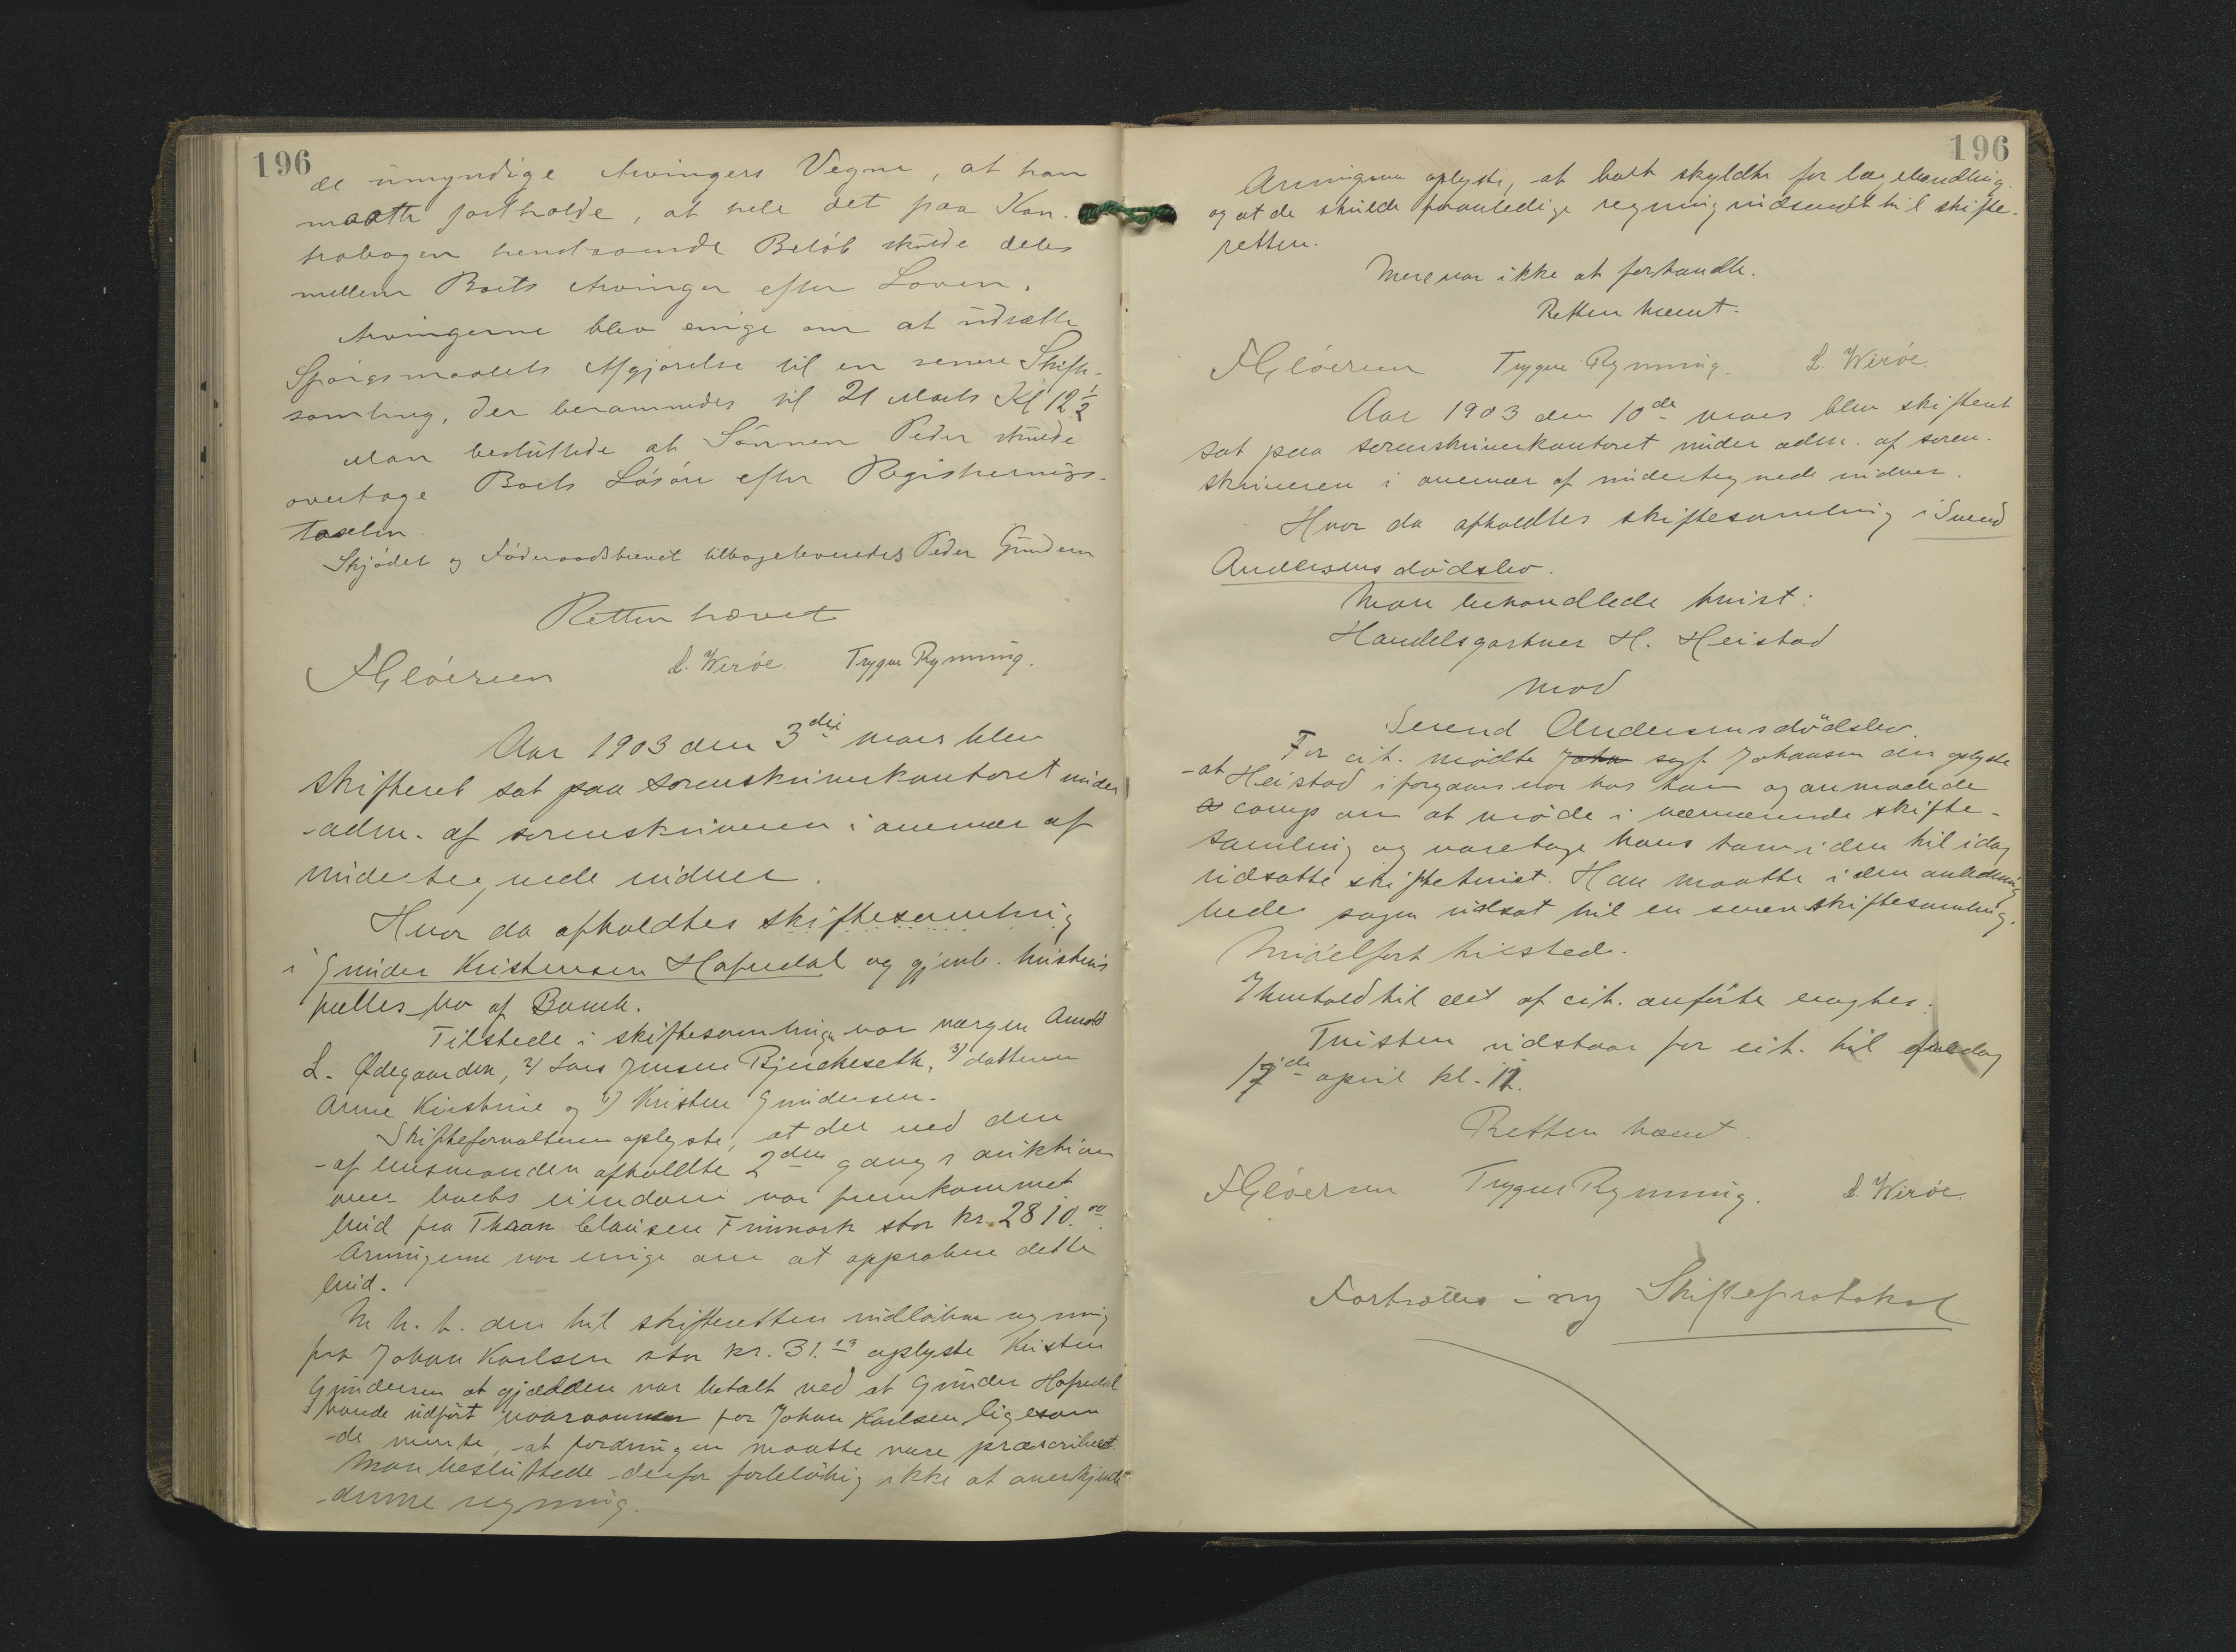 196
de umyndige Arvingers Vegne, at han
maatte fastholde, at hele det paa Kon-
trabogen henstaaende Beløb skulde deles
mellem Boets Arvinger efter Loven.
Arvingerne blev enige om at udsætte
Spørgsmaalets Afgjørelse til en senere Skifte-
samling, der berammedes til 21 Marts Kl 12 1/2
Man besluttede at Sønnen Peder skulde
overtage Boets Løsøre efter Registrerings-
taxten
Skjødet og Føderaadsbrevet tilbageleveredes Peder Gundersen
Retten hævet
FGløersen L. Wirøe. Trygve Rynning.
Aar 1903 den 3die mars blev
skifteret sat paa sorenskriverkontoret under
adm. af sorenskriveren i overvær af
undertegnede vidner.
Hvor da afholdtes skiftesamling
i Gunder Kristensen Hafredal og gjenl. hustrus
fælles bo af Bamb.
Tilstede i skiftesamlingen var værgen Arnold
L. Ødegaarden, 2) Lars Jensen Bjerkeseth, 3) datteren
Anne Kirstine og 4) Kristen Gundersen.
Skifteforvalteren oplyste, at der ved den
af lensmanden afholdte 2den gangs auktion
over boets eiendom var fremkommet
bud fra Thran Clausen Finmark stor kr. 2810.00
Arvingerne var enige om at approbere dette
bud.
M. h. t. den til skifteretten indløbne regning
fra Johan Karlsen stor kr. 31.13 oplyste Kristen
Gundersen at gjælden var betalt ved at Gunder Hafredal
havde udført vaaraannen for Johan Karlsen, ligesom
de mente, at fordringen maatte være præscriberet.
Man besluttede derfor foreløbig ikke at anerkjende
denne regning.
196
Arvingerne oplyste, at boet skyldte for lægebehandling
og at de skulde foranledige regning indsendt til skifte-
retten.
Mere var ikke at forhandle.
Retten hævet.
FGløersen Trygve Rynning. L. Wirøe.
Aar 1903 den 10de mars blev skifteret
sat paa sorenskriverkontoret under adm. af soren-
skriveren i overvær af undertegnede vidner.
Hvor da afholdtes skiftesamling i Svend
Andersens dødsbo.
Man behandlede tvist:
Handelsgartner H. Heistad
mod
Svend Andersens dødsbo.
For cit. mødte John sagf. Johansen der oplyste
at Heistad i forgaars var hos ham og anmodede
comp om at møde i nærværende skifte-
samling og varetage hans tarv i den til idag
udsatte skiftetvist. Han maatte i den anledning
bede sagen udsat til en senere skiftesamling.
Middelfart tilstede.
I henhold til det af cit. anførte eragtes:
Tvisten udstaar for cit. til fredag
17de april kl. 11.
Retten hævet.
FGløersen Trygve Rynning. L. Wirøe.
Fortsættes i ny Skifteprotokol